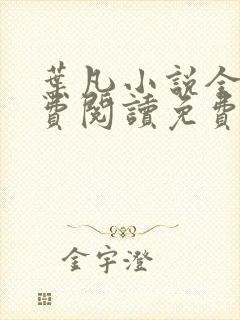 葉凡小說全
費閱讀免費
金宇澄